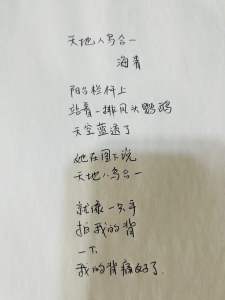 天地人鸟合一
海青
阳台栏杆上
站着一排凤头鹦鹉
天空蓝透了
她在图下说
天地人鸟合一
就像一只手
拍我的背
一下
我的背痛好了